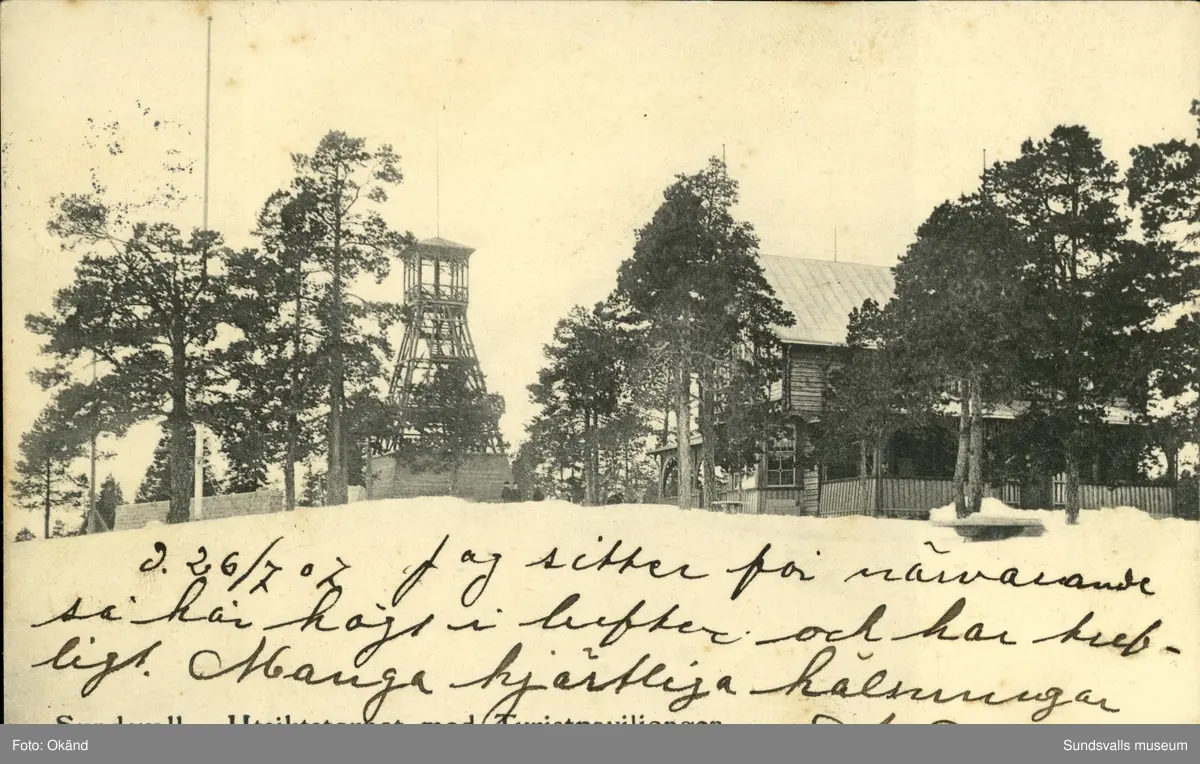 D. 26/7 07 Jag sitter för närvarande
så här högt i luften och har tref-
ligt. Många hjärtliga hälsningar
Sundsvall. Utsiktstornet med Turistpaviljongen.
Foto: Okänd
Sundsvalls museum